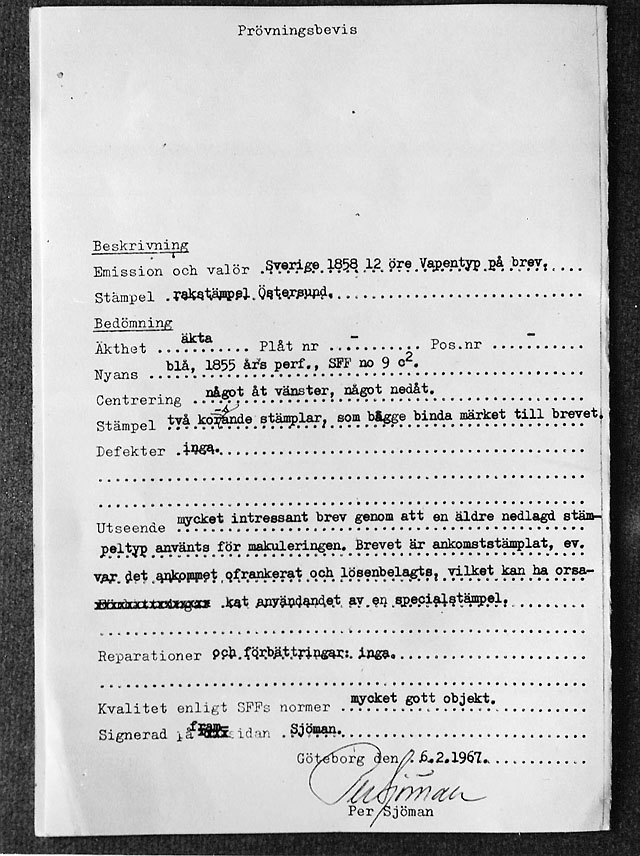 Prövningsbevis
Beskrivning
Emission och valör Sverige 1858 12 öre Vapentyp på brev.
Stämpel rakstämpel Östersund.
Bedömning
Äkthet äkta Plåt nr - Pos.nr -
Nyans blå, 1855 års perf., SFF no 9 c2.
Centrering något åt vänster, något nedåt.
Stämpel två korsande stämplar, som bägge binda märket till brevet.
Defekter inga.
Utseende mycket intressant brev genom att en äldre nedlagd stäm-
peltyp använts för makuleringen. Brevet är ankomststämplat, ev.
var det ankommet ofrankerat och lösenbelagts, vilket kan ha orsa-
kat användandet av en specialstämpel.
Reparationer och förbättringar: inga.
Kvalitet enligt SFFs normer mycket gott objekt.
Signerad på fram-sidan Sjöman.
Göteborg den 6.2.1967.
Per Sjöman
Per Sjöman